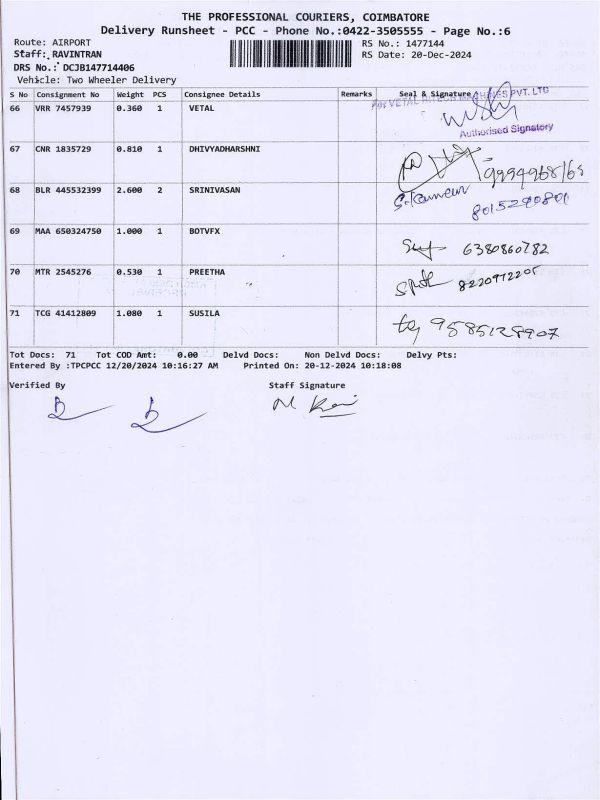 THE PROFESSIONAL COURIERS, COIMBATORE
Delivery Runsheet - PCC - Phone No.:0422-3505555 - Page No.:6
Route: AIRPORT
Staff: RAVINTRAN
DRS No.: DCJB147714406
Vehicle: Two Wheeler Delivery
RS No.: 1477144
RS Date: 20-Dec-2024
S No Consignment No Weight PCS Consignee Details Remarks Seal & Signature
For VETAL HITECH MACHINES PVT. LTD
66 VRR 7457939 0.360 1 VETAL
Authorised Signatory
67 CNR 1835729 0.810 1 DHIVYADHARSHNI
68 BLR 445532399 2.600 2 SRINIVASAN 8015290801
69 MAA 650324750 1.000 1 BOTVFX 6380860782
70 MTR 2545276 0.530 1 PREETHA 8220972205
71 TCG 41412809 1.080 1 SUSILA 9585129907
Tot Docs: 71 Tot COD Amt: 0.00 Delvd Docs: Non Delvd Docs: Delvy Pts:
Entered By :TPCPCC 12/20/2024 10:16:27 AM Printed On: 20-12-2024 10:18:08
Verified By Staff Signature